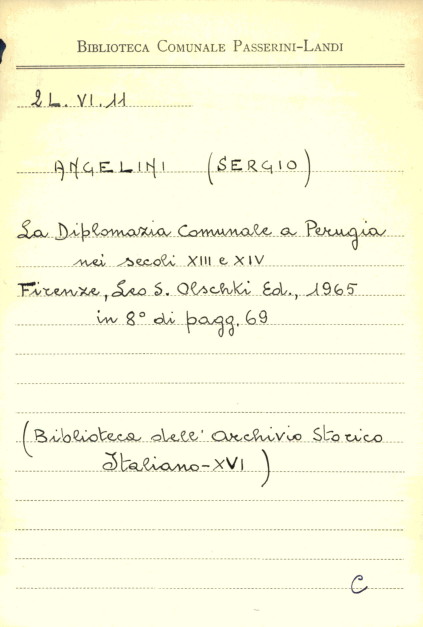 BIBLIOTECA COMUNALE PASSERINI-LANDI
2L. VI. 11
ANGELINI (SERGIO)
La Diplomazia Comunale a Perugia
nei secoli XIII e XIV
Firenze, Leo S. Olschki Ed., 1965
in 8° di pagg. 69
(Biblioteca dell' Archivio Storico
Italiano-XVI)
C